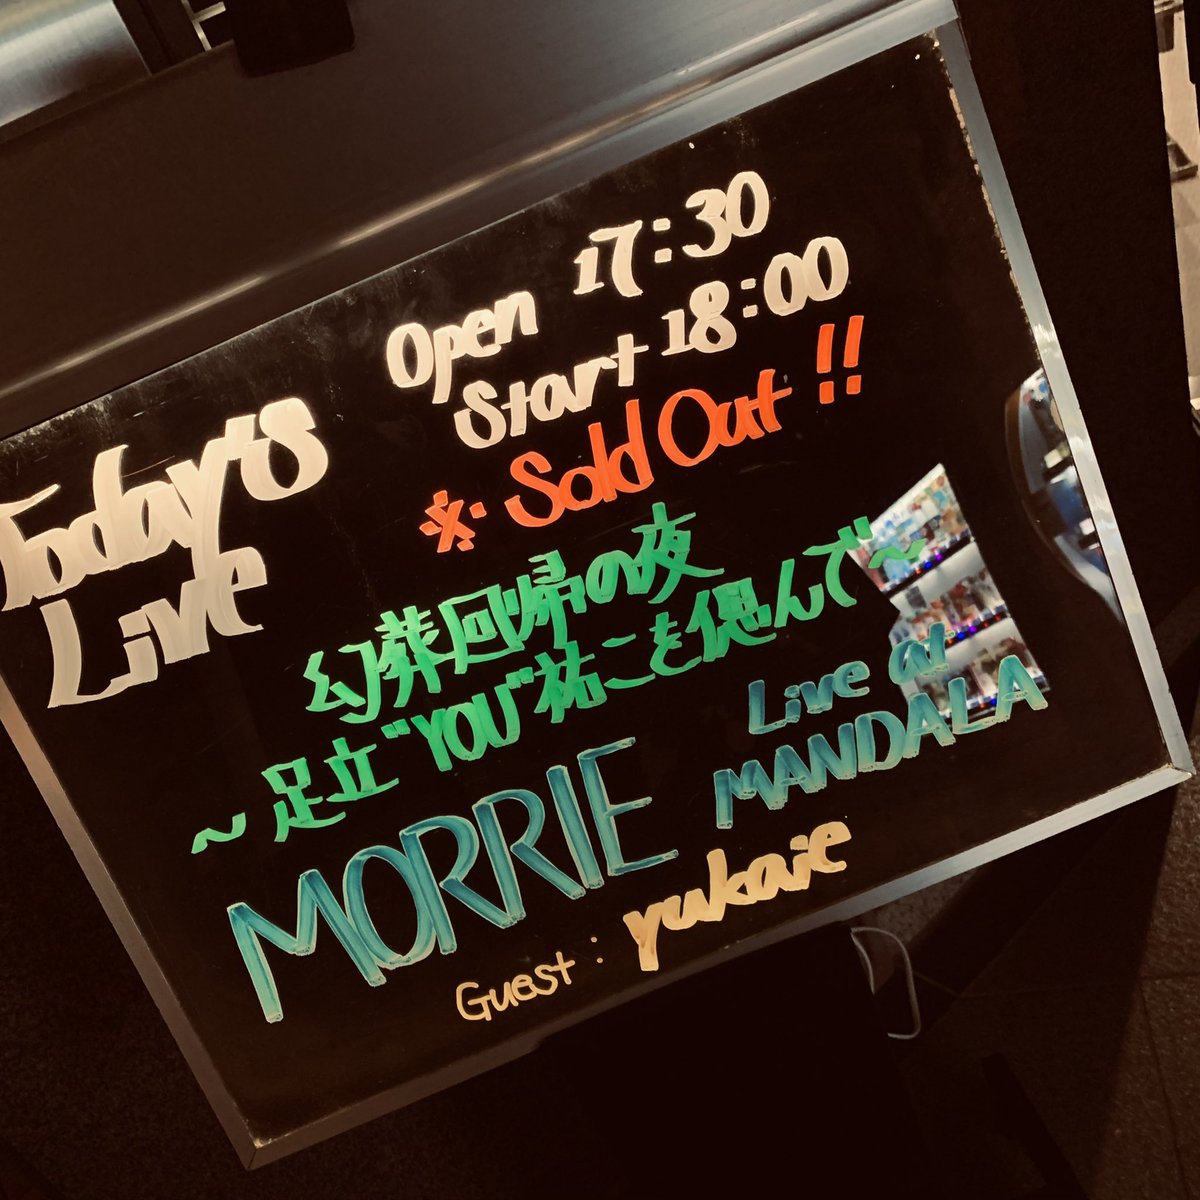 Today's
Live
Open 17:30
Start 18:00
※ Sold Out !!
幻葬回帰の夜
～足立"YOU"祐二を偲んで～
MORRIE
Live at
MANDALA
Guest : yukaie